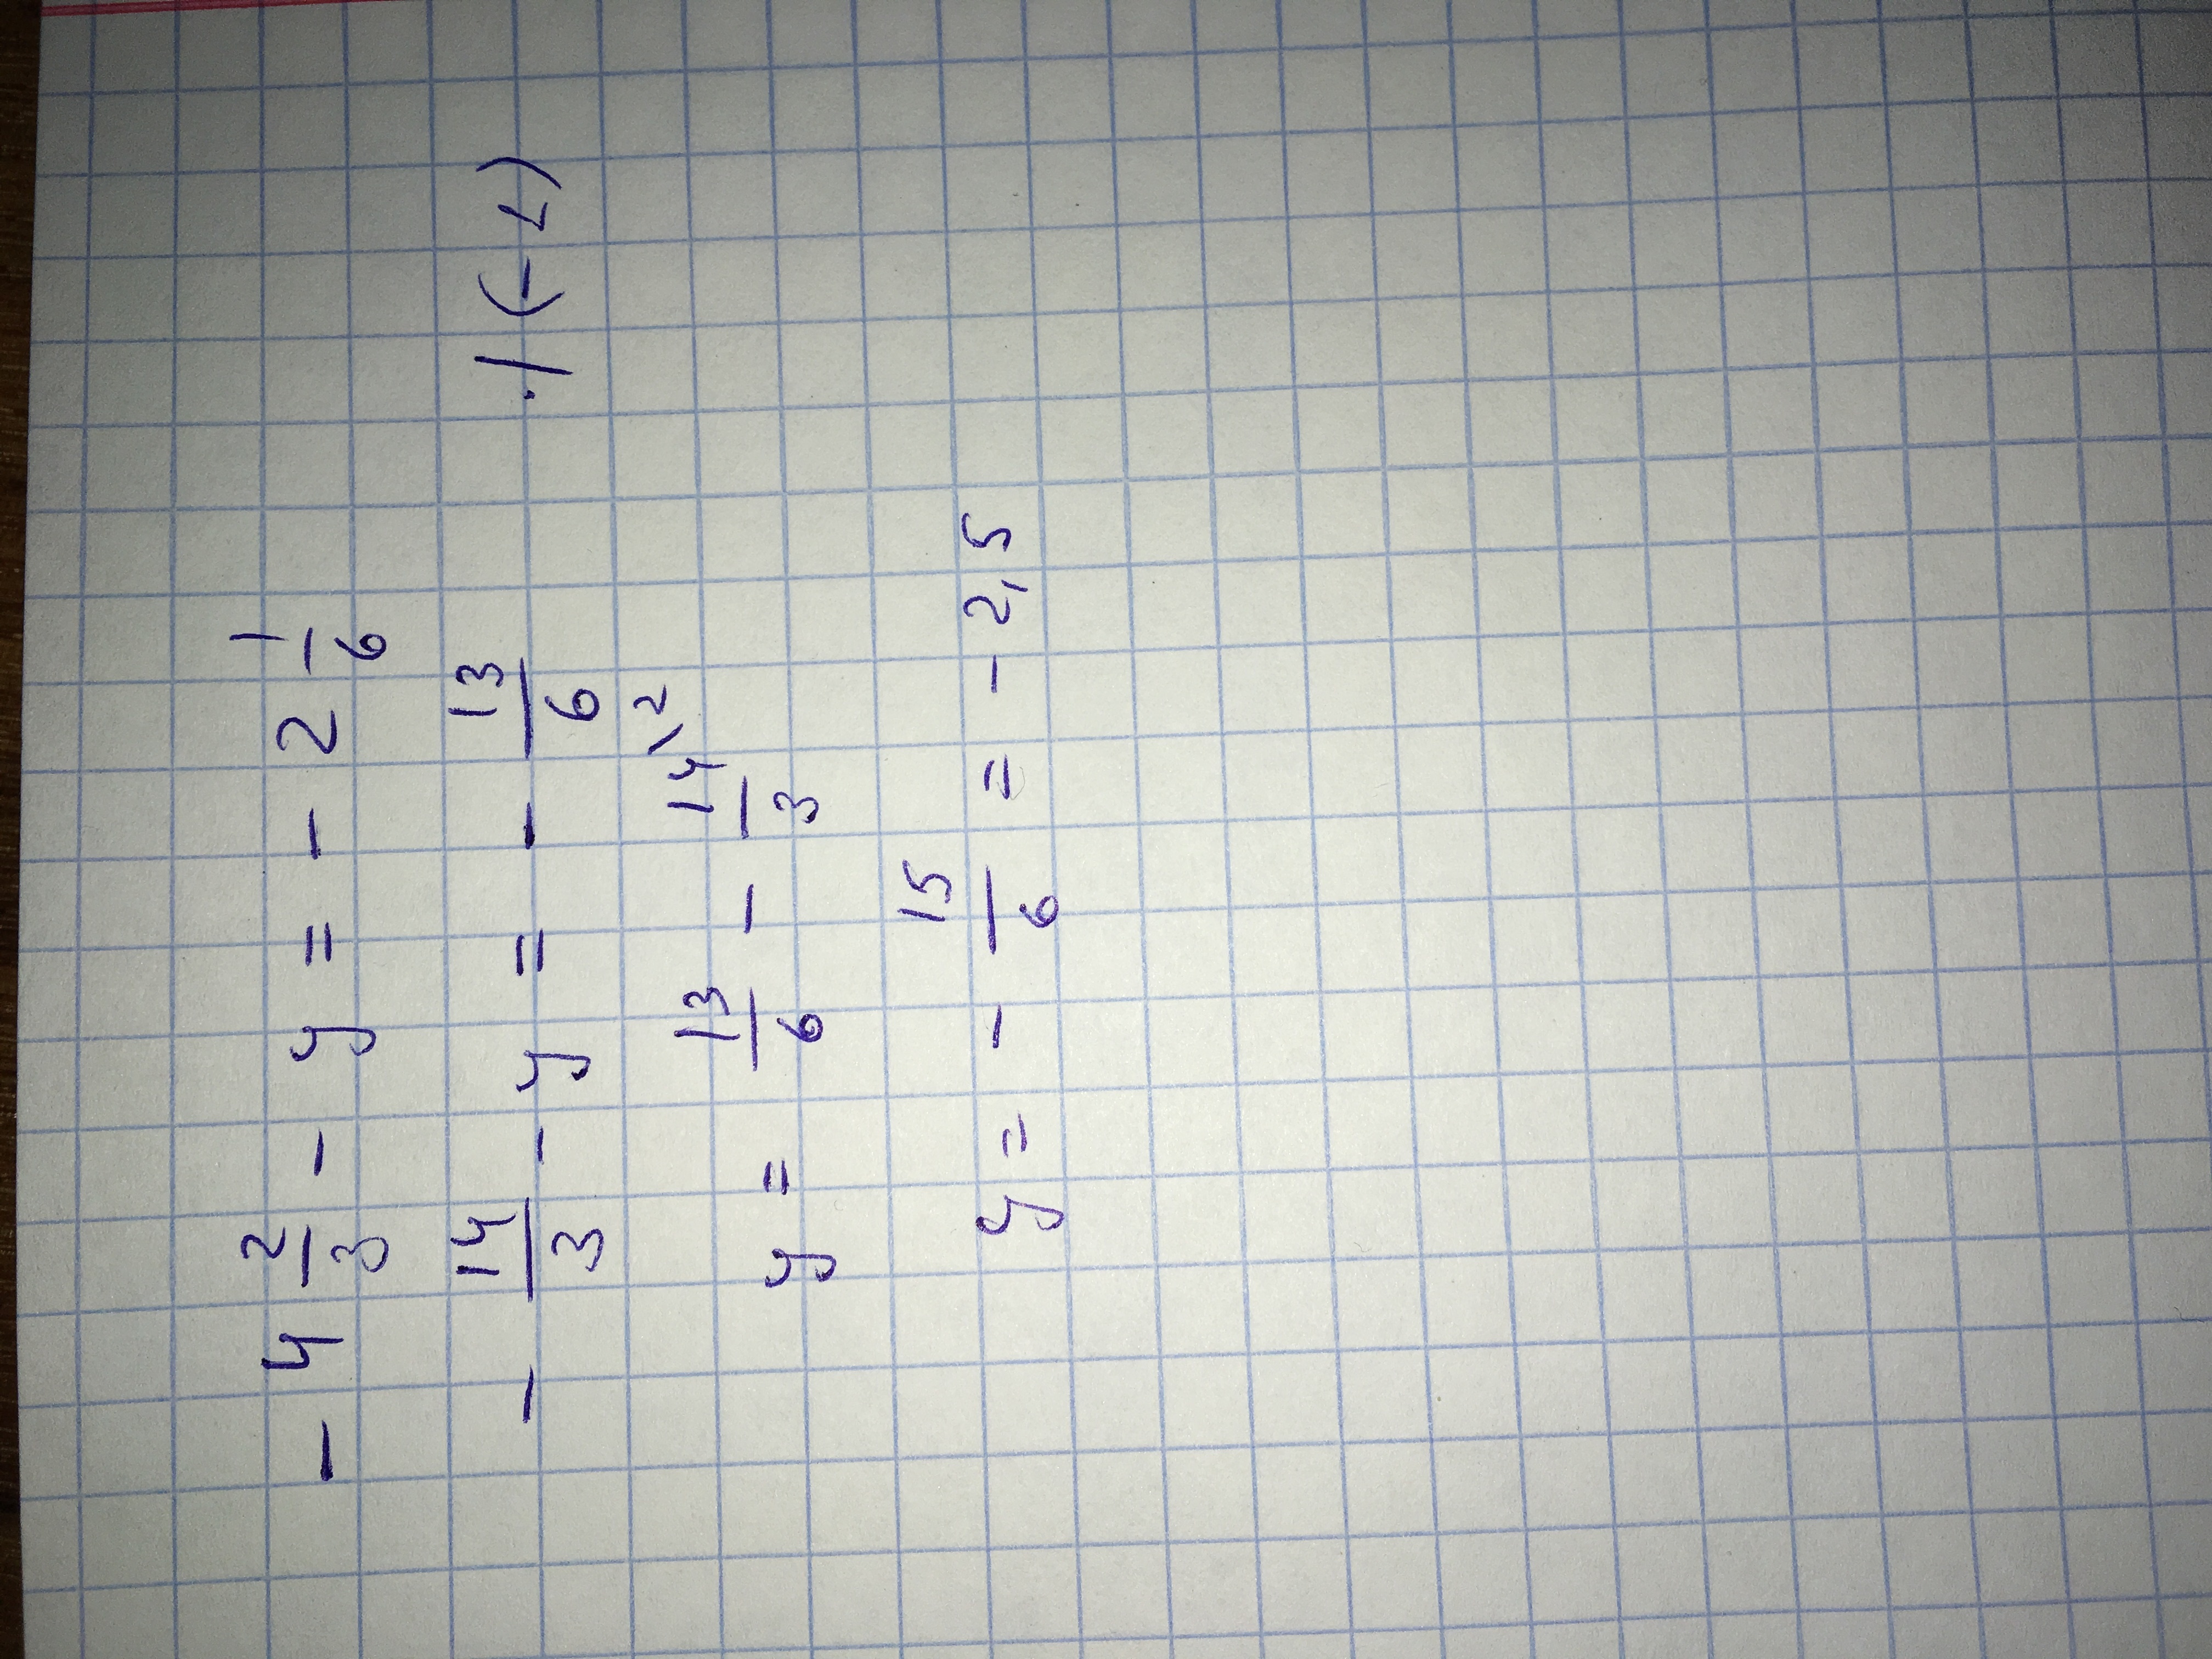 - 4 2/3 - y = - 2 1/6
- 14/3 - y = - 13/6 ·|(-1)
y = 13/6 - 14/3 \2
y = - 15/6 = - 2,5